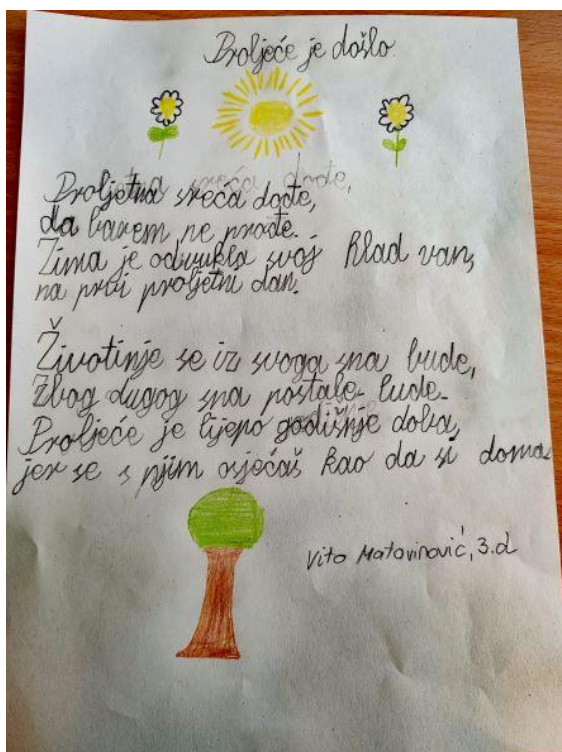 Proljeće je došlo
Proljetna sreća dođe,
da barem ne prođe.
Zima je odvukla svoj hlad van,
na prvi proljetni dan.
Životinje se iz svoga sna bude,
zbog dugog sna postale lude.
Proljeće je lijepo godišnje doba,
jer se s njim osjećaš kao da si doma.
Vito Matovinović, 3.d